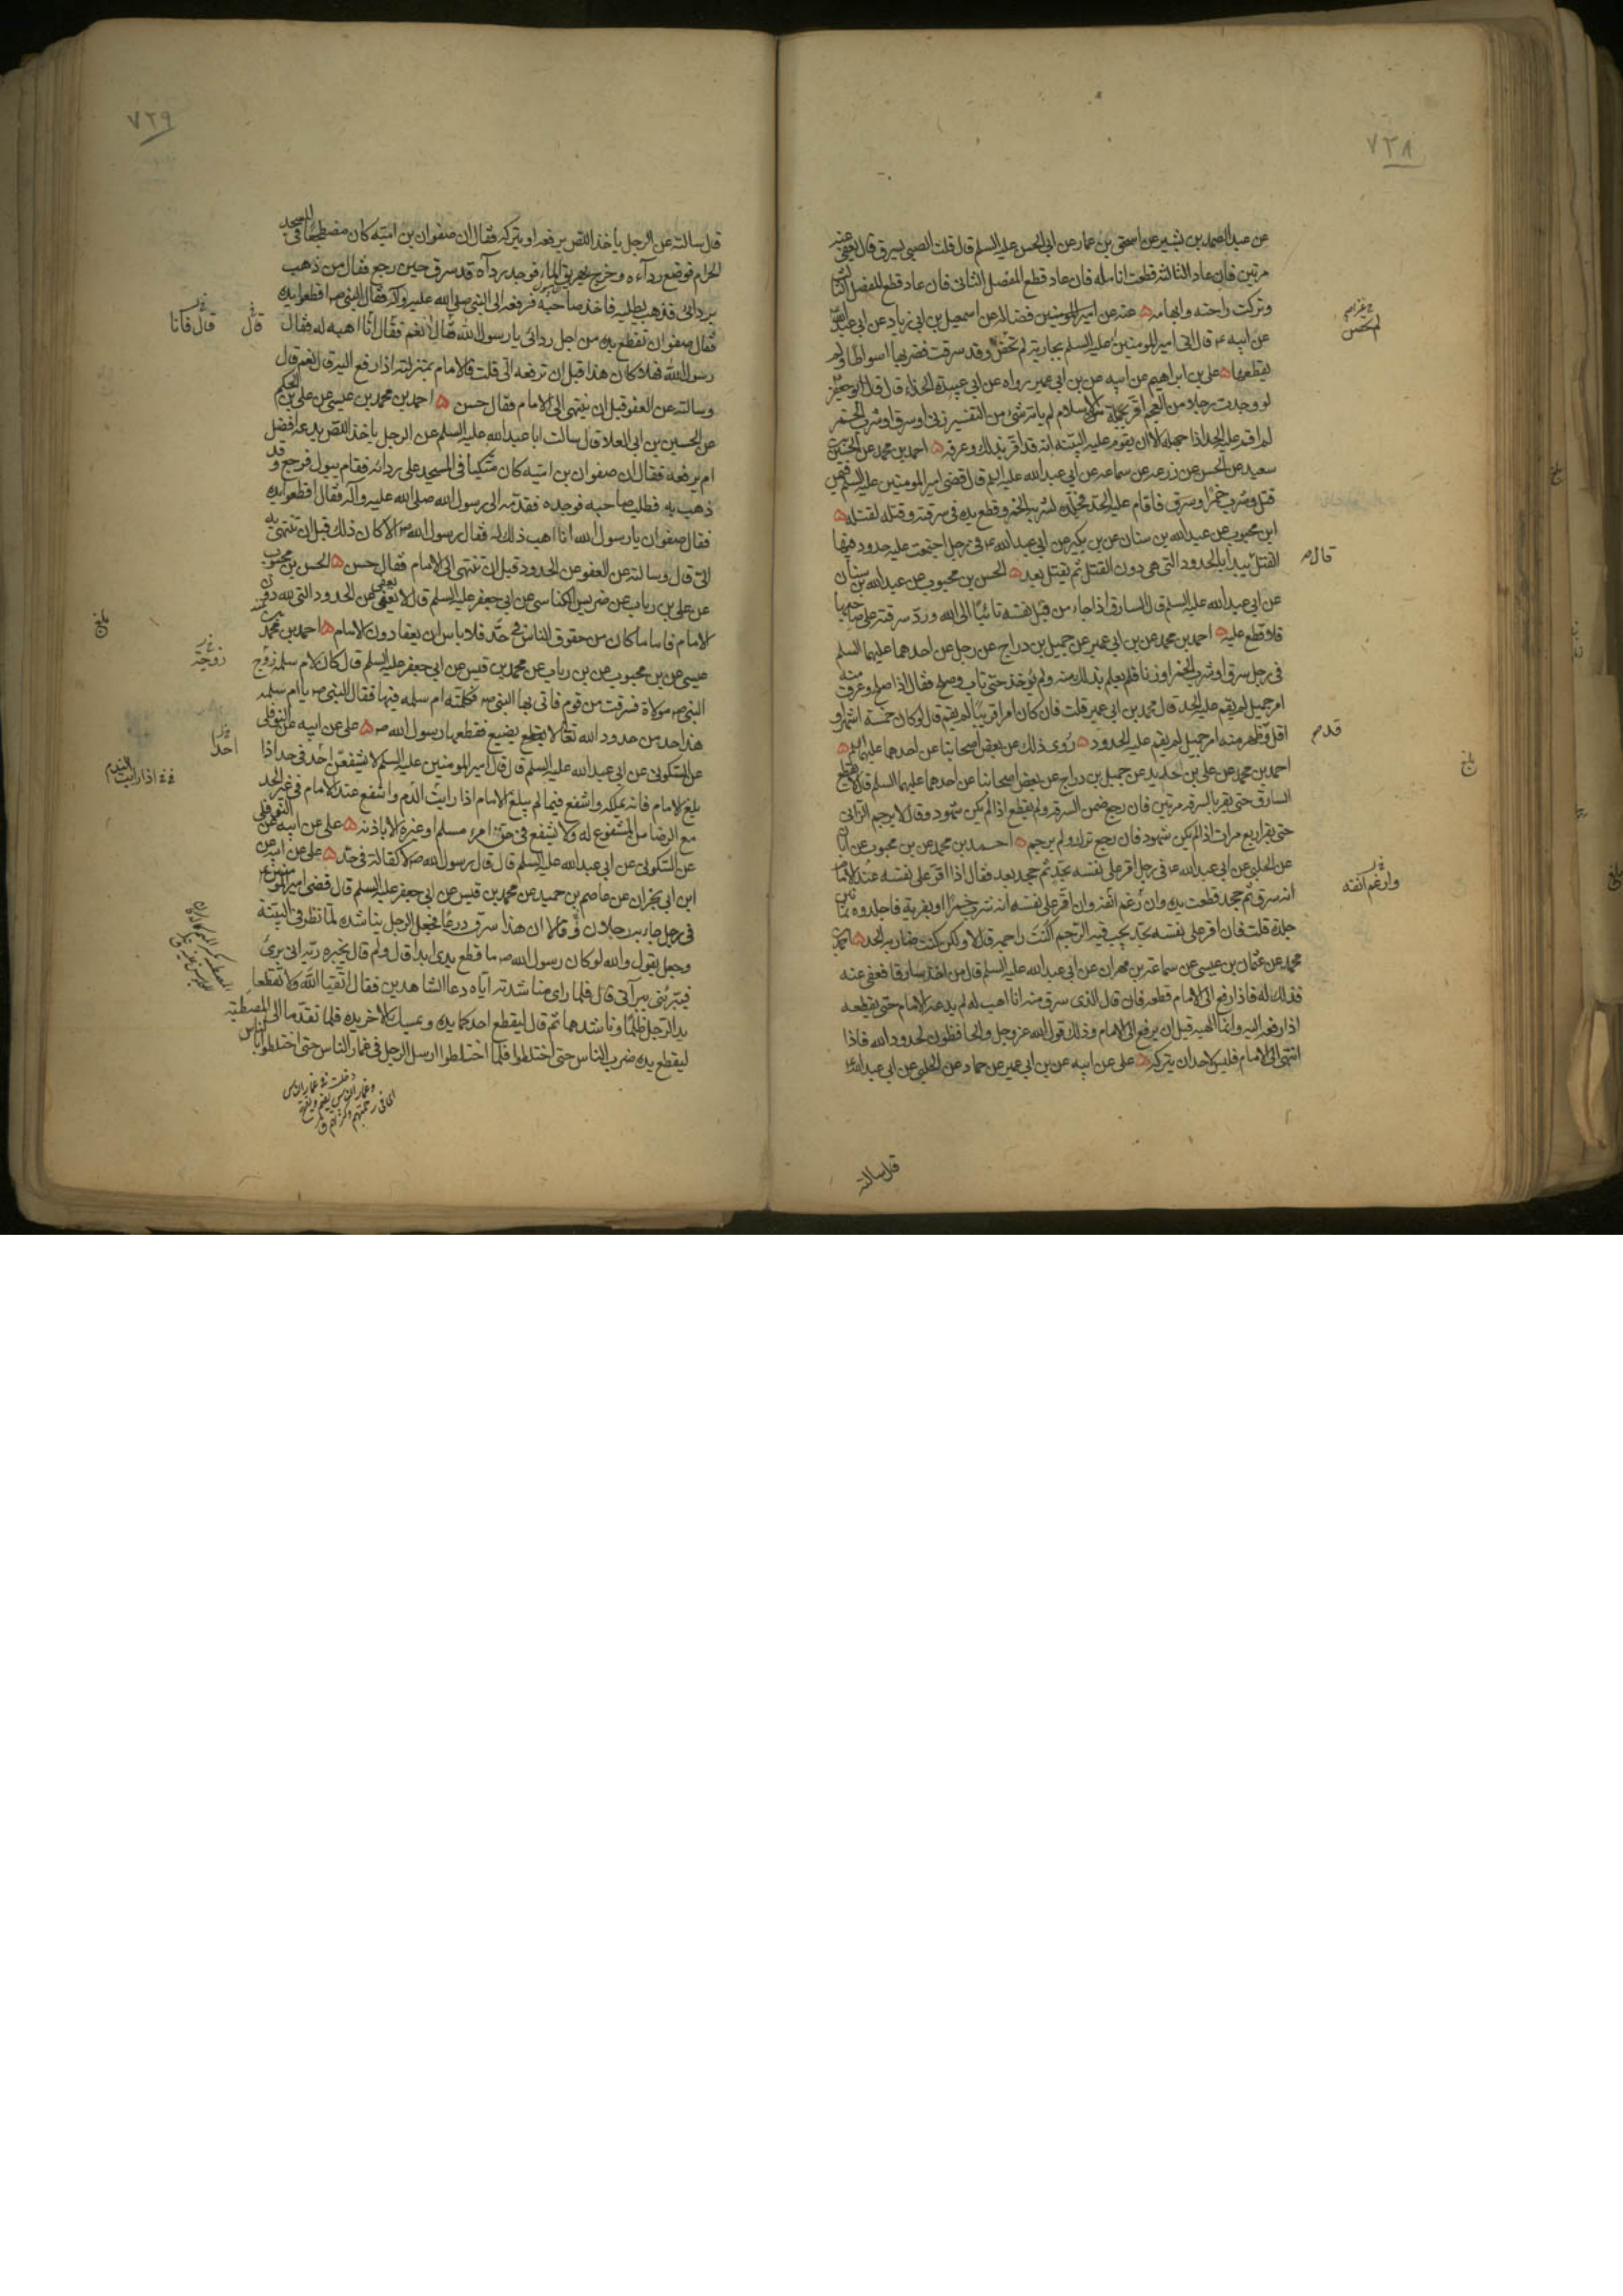 ٧٢٨
عن عبد الصمد بن بشير عن اسحق بن عمار عن ابى الحسن عليه السلم قال قلت الصبى يسرق قال يعفى عنه
مرتين فان عاد الثالثة قطعت انامله فان عاد قطع المفصل الثانى فان عاد قطع المفصل الثالث
وتركت راحته وابهامه عنه عن امير المومنين فضاله عن اسمعيل بن ابى زياد عن ابى عبد الله
عن ابيه ع قال اتى امير المومنين عليه السلم بجارية لم تحض وقد سرقت فضربها اسواطا ولم
يقطعها على بن ابراهيم عن ابيه عن بن ابى عمير رواه عن ابى عبيدة الحذاء قال قال ابو جعفر
لو وجدت رجلا من العجم اقر بجملة الاسلام لم ياته شئ من التفسير زنى او سرق او شرب الخمر
لم اقم عليه الحد اذا جهله الا ان يقوم عليه البينة انه قد اقر بذلك وعرفه احمد بن محمد عن الحسين بن
سعيد عن الحسن عن زرعه عن سماعه عن ابى عبد الله عليه السلم قال قضى امير المومنين عليه السلم فيمن
قتل وشرب خمرا وسرق فاقام عليه الحد فجلده لشربه الخمر وقطع يده فى سرقته وقتله لقتله
ابن محبوب عن عبد الله بن سنان عن بن بكير عن ابى عبد الله ع فى رجل اجتمعت عليه حدود فيها
القتل يبدأ بالحدود التى هى دون القتل ثم يقتل بعد الحسن بن محبوب عن عبد الله بن سنان
عن ابى عبد الله عليه السلم قال السارق اذا جاء من قبل نفسه تائبا الى الله ورد سرقته على صاحبها
فلا قطع عليه احمد بن محمد عن بن ابى عمير عن جميل بن دراج عن رجل عن احدهما عليهما السلم
فى رجل سرق او شرب الخمر او زنا فلم يعلم بذلك منه ولم يؤخذ حتى تاب وصلح فقال اذا صلح وعرف منه
امر جميل لم يقم عليه الحد قال محمد بن ابى عمير قلت فان كان امرا قريبا لم يقم قال لو كان خمسة اشهر او
اقل وظهر منه امر جميل لم يقم عليه الحدود روى ذلك عن بعض اصحابنا عن احدهما عليهما السلم
احمد بن محمد عن على بن حديد عن جميل بن دراج عن بعض اصحابنا عن احدهما عليهما السلم قال لا يقطع
السارق حتى يقر بالسرقه مرتين فان رجع ضمن السرقه ولم يقطع اذا لم يكن شهود وقال لا يرجم الزانى
حتى يقر اربع مرات اذا لم يكن شهود فان رجع ترك ولم يرجم احمد بن محمد عن بن محبوب عن ابان
عن الحلبى عن ابى عبد الله ع فى رجل اقر على نفسه بحد ثم جحد بعد فقال اذا اقر على نفسه عند الامام
انه سرق ثم جحد قطعت يده وان رغم انفه وان اقر على نفسه انه شرب خمرا او بفرية فاجلدوه ثمانين
جلدة قلت فان اقر على نفسه بحد يجب فيه الرجم اكنت راجمه قال لا ولكن كنت ضاربه الحد احمد بن
محمد عن عثمان بن عيسى عن سماعة بن مهران عن ابى عبد الله عليه السلم قال من اخذ سارقا فعفى عنه
فذلك له فاذا رفع الى الامام قطعه فان قال الذى سرق منه انا اهب له لم يدعه الامام حتى يقطعه
اذا رفعه اليه وانما الهبه قبل ان يرفع الى الامام وذلك قول الله عز وجل والحافظون لحدود الله فاذا
انتهى الى الامام فليس لاحد ان يتركه على عن ابيه عن بن ابى عمير عن حماد عن الحلبى عن ابى عبد الله
قال سالته
لم تحصن
قال م
قدم
بلغ
وارغم انفه
٧٢٩
قال سالته عن الرجل ياخذ اللص يرفعه او يتركه فقال ان صفوان بن اميه كان مضطجعا فى المسجد
الحرام فوضع رداءه وخرج يهريق الماء فوجد رداه قد سرق حين رجع فقال من ذهب
بردائى فذهب يطلبه فاخذ صاحبه فرفعه الى النبى صلى الله عليه وآله فقال النبى ص اقطعوا يده
فقال صفوان تقطع يده من اجل ردائى يا رسول الله قال نعم فقال انا اهبه له فقال
رسول الله فهلا كان هذا قبل ان ترفعه الى قلت فالامام بمنزلته اذا رفع اليه قال نعم قال
وسالته عن العفو قبل ان ينتهى الى الامام فقال حسن احمد بن محمد بن عيسى عن على بن الحكم
عن الحسين بن ابى العلا قال سالت ابا عبد الله عليه السلم عن الرجل ياخذ اللص يدعه افضل
ام يرفعه فقال ان صفوان بن اميه كان متكيا فى المسجد على ردائه فقام يبول فرجع وقد
ذهب به فطلب صاحبه فوجده فقدمه الى رسول الله صلى الله عليه وآله فقال اقطعوا يده
فقال صفوان يا رسول الله انا اهب ذلك له فقال رسول الله ص الا كان ذلك قبل ان تنتهى به
الى قال وسالته عن العفو عن الحدود قبل ان تنتهى الى الامام فقال حسن الحسن بن محبوب
عن على بن رياب عن ضريس الكناسى عن ابى جعفر عليه السلم قال لا يعفى عن الحدود التى لله دون
الامام فاما ما كان من حقوق الناس فى حد فلا باس ان يعفا دون الامام احمد بن محمد بن
عيسى عن بن محبوب عن بن رياب عن محمد بن قيس عن ابى جعفر عليه السلم قال كان لام سلمه زوج
النبى ص مولاة فسرقت من قوم فاتى بها النبى ص فكلمته ام سلمه فيها فقال النبى ص يا ام سلمه
هذا حد من حدود الله تعالى لا يضيع فقطعها رسول الله ص على عن ابيه عن النوفلى
عن السكونى عن ابى عبد الله عليه السلم قال قال امير المومنين عليه السلم لا يشفعن احد فى حد اذا
بلغ الامام فانه يملكه واشفع فيما لم يبلغ الامام اذا رايت الدم واشفع عند الامام فى غير الحد
مع الرضا من المشفوع له ولا يشفع فى حق امرء مسلم او غيره الا باذنه على عن ابيه عن النوفلى
عن السكونى عن ابى عبد الله عليه السلم قال قال رسول الله ص لا كفالة فى حد على عن ابيه عن
ابن ابى نجران عن عاصم بن حميد عن محمد بن قيس عن ابى جعفر عليه السلم قال قضى امير المومنين ع
فى رجل جاء به رجلان وقالا ان هذا سرق درعا فجعل الرجل يناشده لما نظر فى البينة
وجعل يقول والله لو كان رسول الله ص ما قطع يدى ابدا قال ولم قال يخبره ربه انى برئ
فيبرئنى ببرآتى قال فلما راى مناشدته اياه دعا الشاهدين فقال اتقيا الله ولا تقطعا
يد الرجل ظلما وناشدهما ثم قال ليقطع احدكما يده ويمسك الاخر يده فلما تقدما الى المصطبة
ليقطع يده ضرب الناس حتى اختلطوا فلما اختلطوا ارسلا الرجل فى غمار الناس حتى اختلطوا بالناس
قال
قال فانا
بلغ
زوجة
احدا
اذا رايت الندم